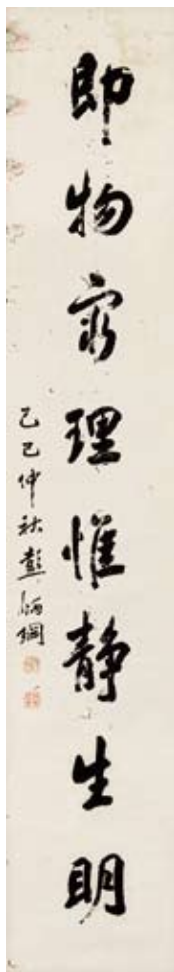 即物穷理惟静生明
己巳仲秋彭炳纲